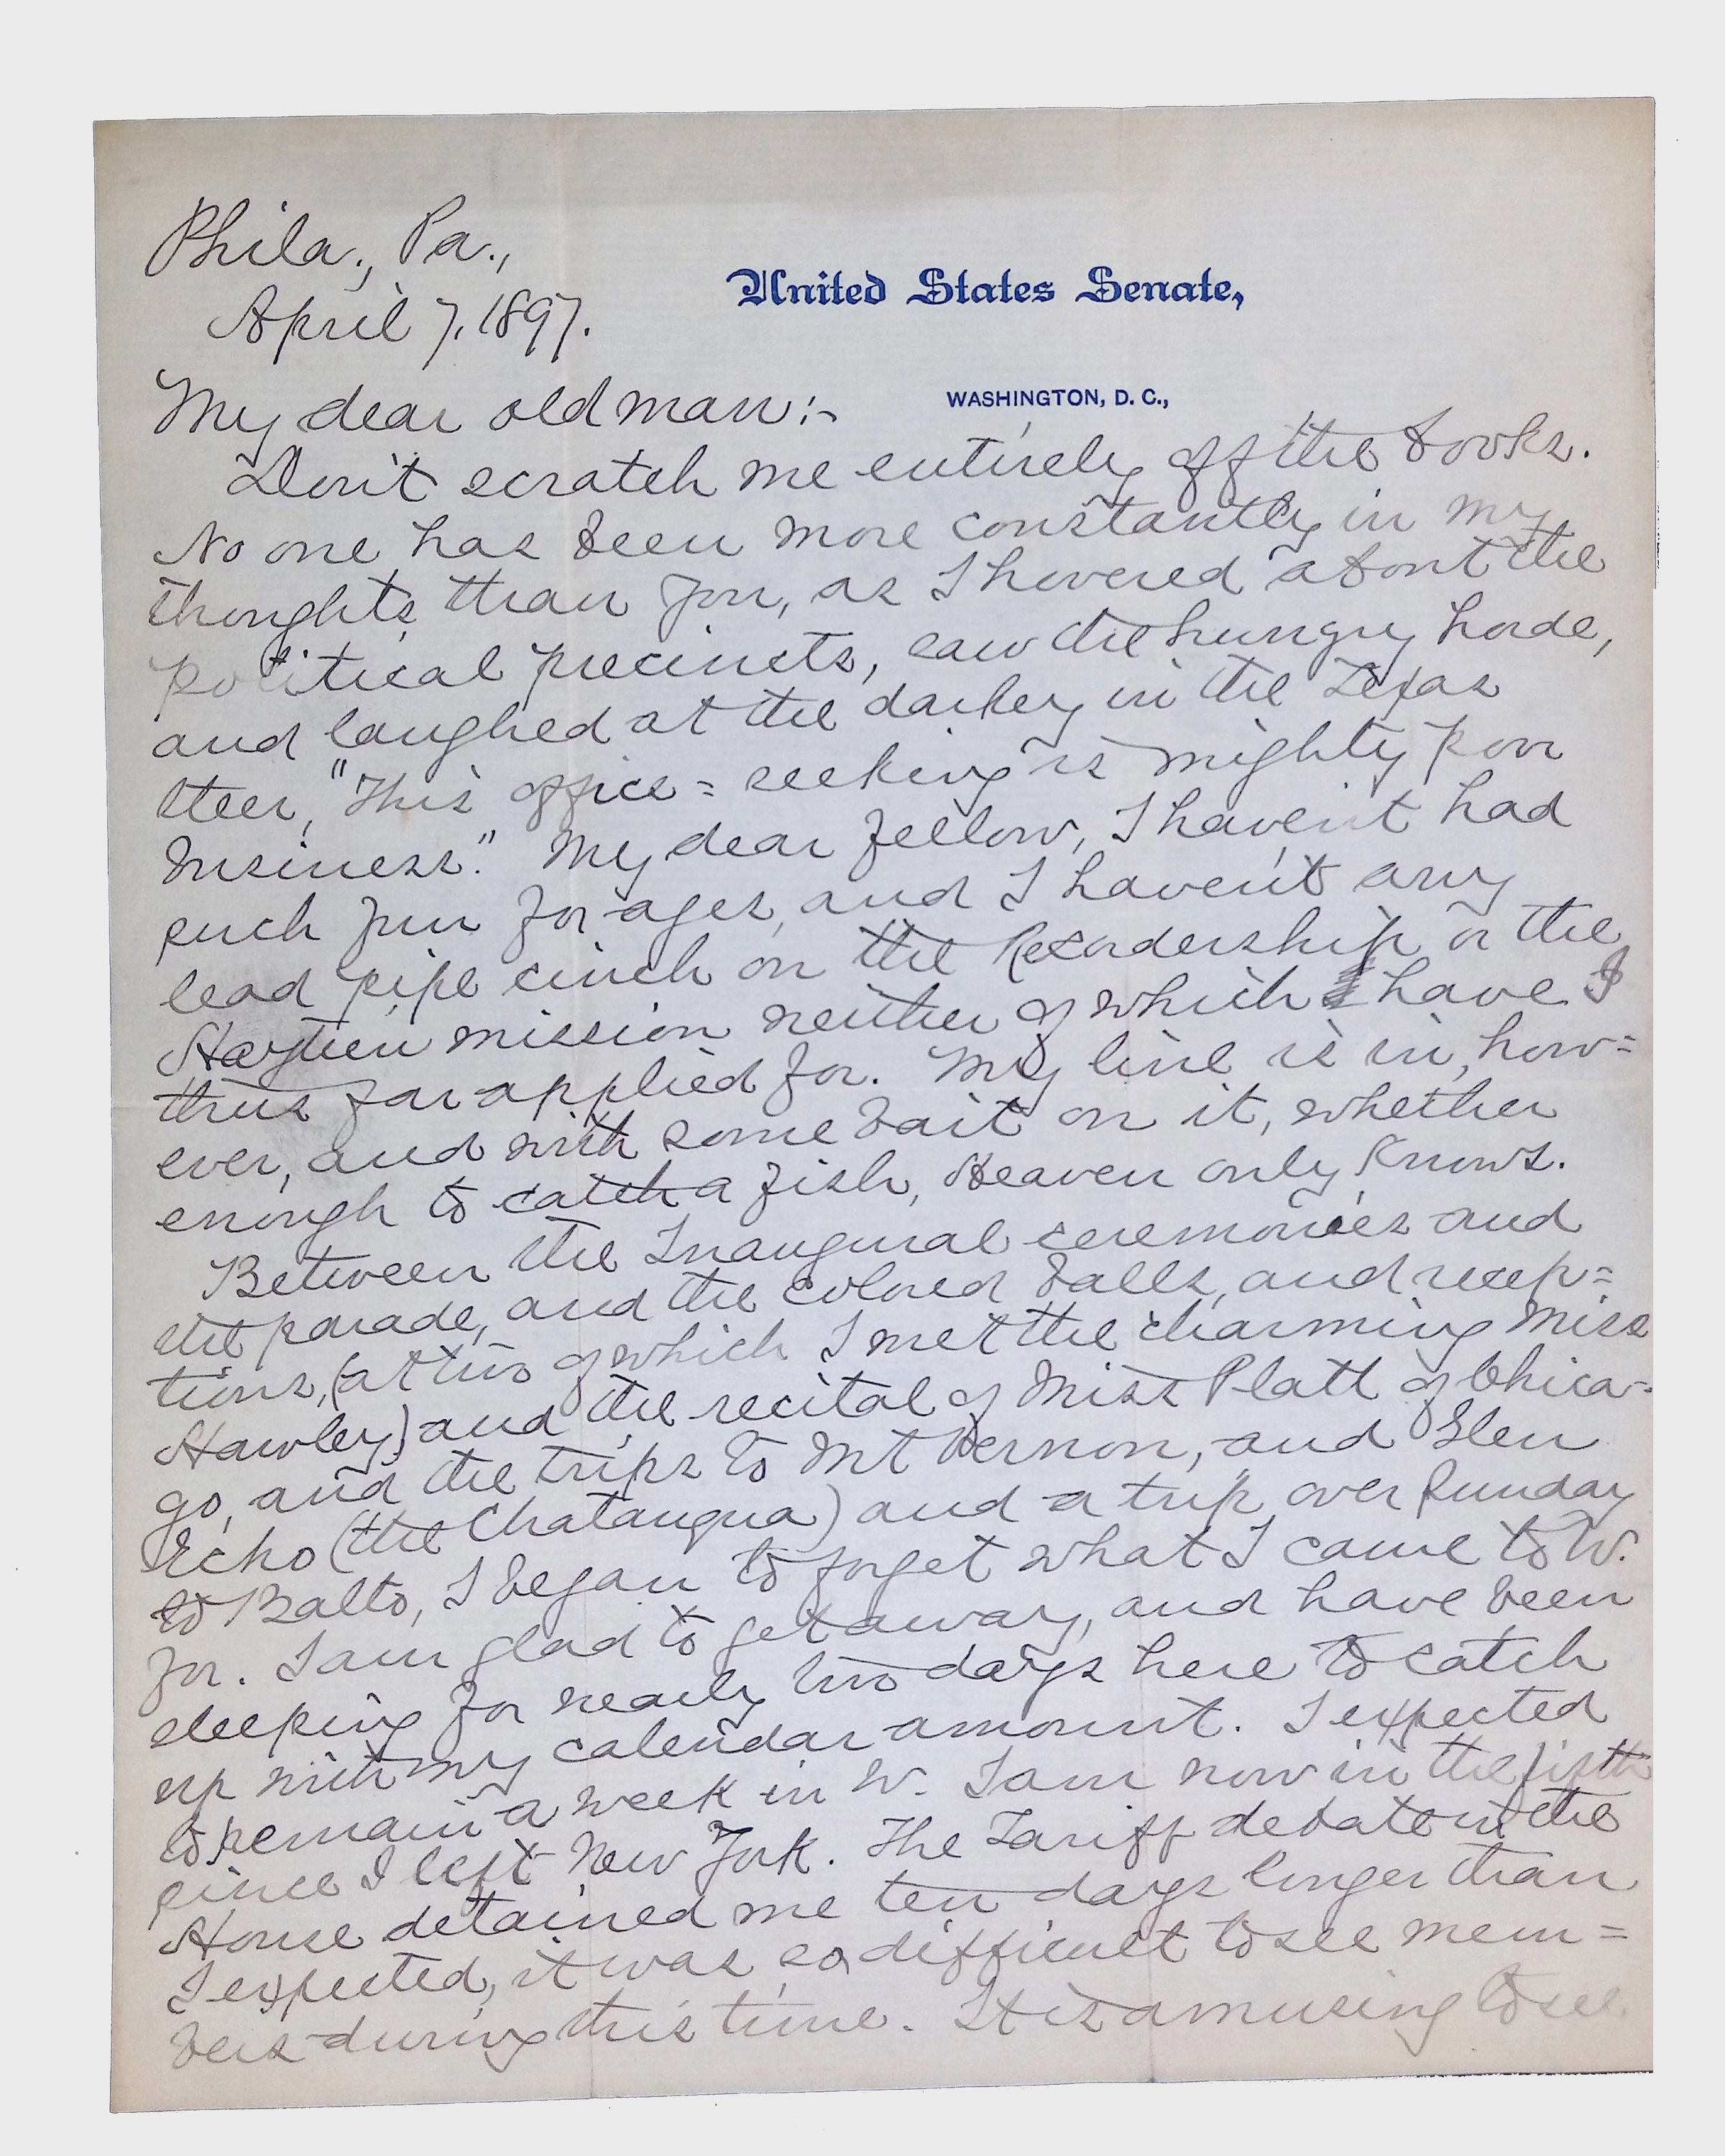 Phila., Pa.,
United States Senate,
April 7, 1897.
WASHINGTON, D. C.,
My dear old man:-
Don't scratch me entirely off the books.
No one has been more constantly in my
thoughts than you, as I hovered about the
political precincts, saw the hungry horde,
and laughed at the darkey in the Texas
steer, "This office=seeking is mighty poor
business." My dear fellow, I haven't had
such fun for ages, and I haven't any
lead pipe cinch on the Recordership or the
Haytien mission neither of which have I
thus far applied for. My line is in, how=
ever, and with some bait on it, whether
enough to catch a fish, Heaven only knows.
Between the Inaugural ceremonies and
the parade, and the colored balls, and recep=
tions, (at two of which I met the charming Miss
Hawley) and the recital of Miss Platt of Chica-
go, and the trips to Mt Vernon, and Glen
Echo (the Chatauqua) and a trip over Sunday
to Balto, I began to forget what I came to W.
for. I am glad to get away, and have been
sleeping for nearly two days here to catch
up with my calendar amount. I expected
to remain a week in W. I am now in the fifth
since I left New York. The Tariff debate in the
House detained me ten days longer than
I expected, it was so difficult to see mem=
bers during this time. It is amusing to see